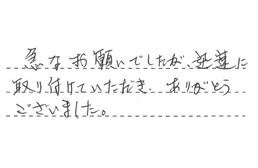 急なお願いでしたが、迅速に
取り付けていただき、ありがとう
ございました。